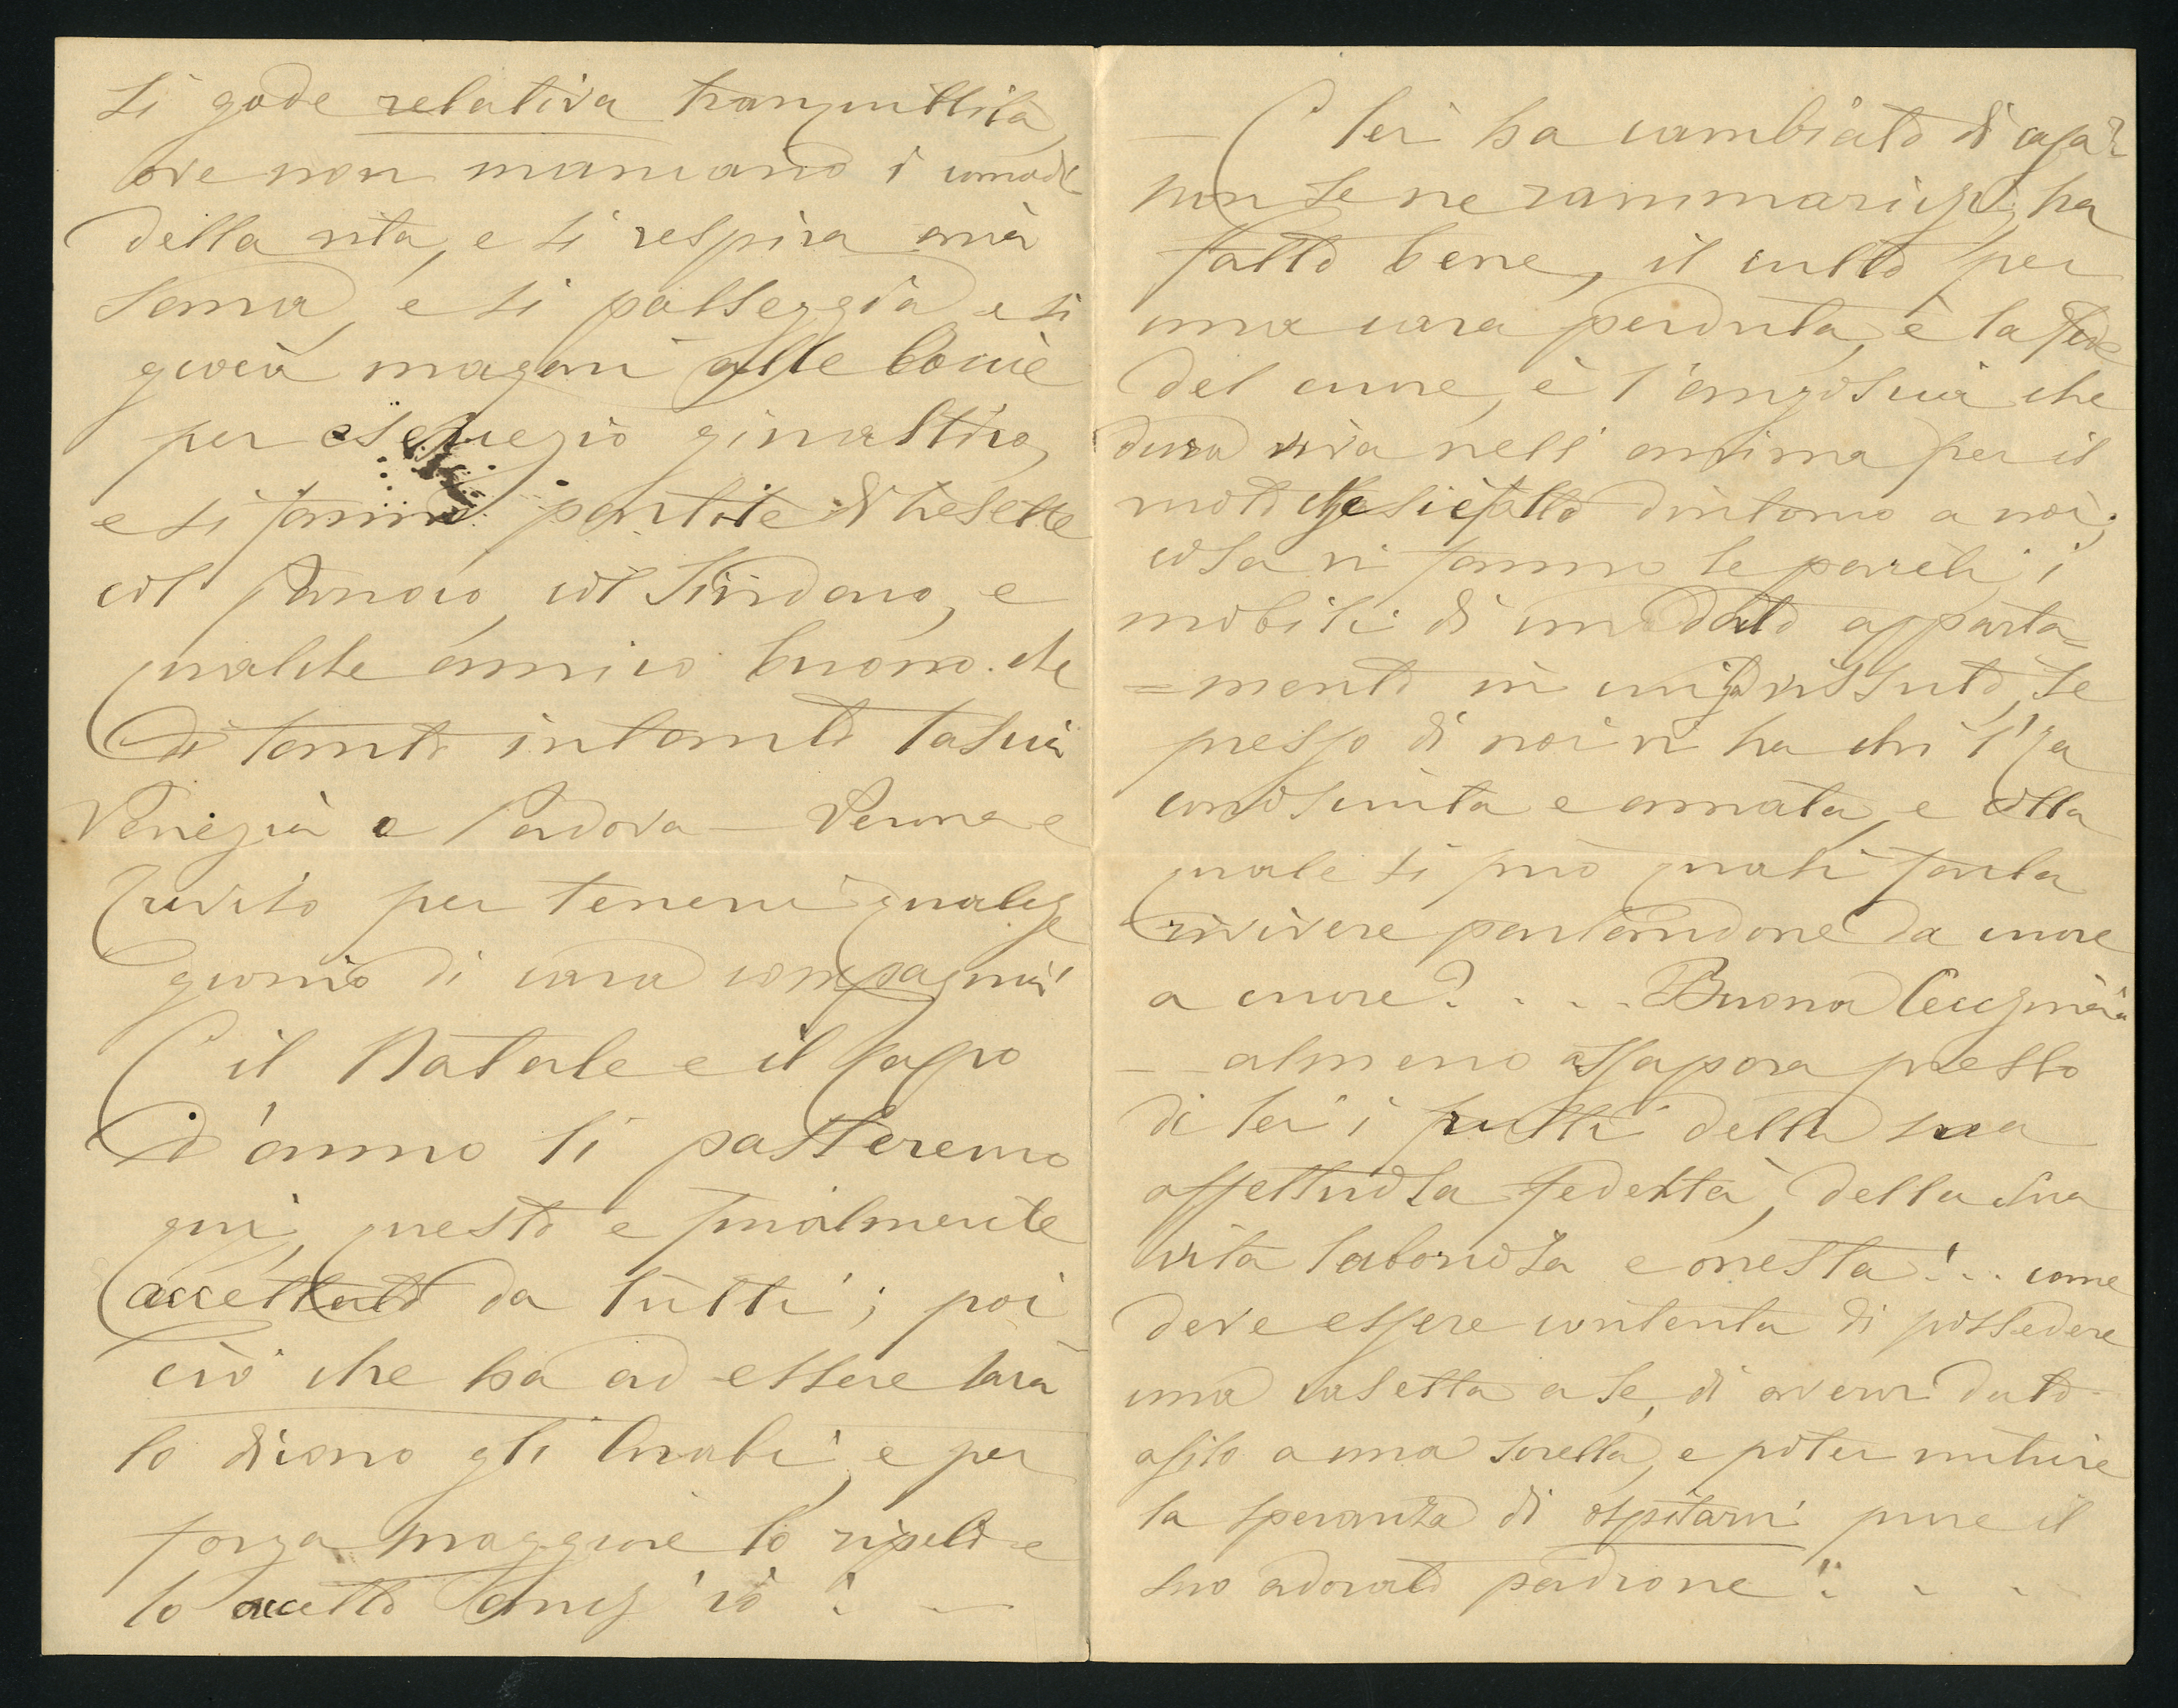 si gode relativa tranquillità,
ove non mancano i comodi
della vita, e si respira aria
sana, e si passeggia e si
giuoca magari alle boccie
per esercizio ginastico,
e si fanno partite di tresette
col Parroco, col Sindaco, e
qualche amico buono che
di tanto intanto lascia
Venezia e Padova — Verona e
Treviso per tenerci qualche
giorno di cara compagnia!
E il Natale e il Capo
d'anno li passeremo
qui, questo è finalmente
accettato da tutti; poi
ciò che ha ad essere sarà
lo dicono gli Arabi, e per
forza maggiore lo ripeto e
lo accetto anch'io! —
— E lei ha cambiato di casa?
non se ne rammarichi, ha
fatto bene, il culto per
una cara perduta, è la fede
del cuore, è l'angoscia che
dura viva nell'anima per il
vuoto che si è fatto dintorno a noi;
cosa vi fanno le pareti, i
mobili di un dato apparta=
=mento in cui s'è vissuto, se
presso di noi vi ha chi l'ha
conosciuta e amata, e colla
quale si può quasi farla
rivivere parlandone da cuore
a cuore? . . . Buona
— almeno assapora presso
di lei i frutti della sua
affettuosa fedeltà, della sua
vita laboriosa e onesta!.. come
deve essere contenta di possedere
una casetta a se, di avervi dato
asilo a una sorella, e poter nutrire
la speranza di ospitarvi pure il
suo adorato padrone! . . .